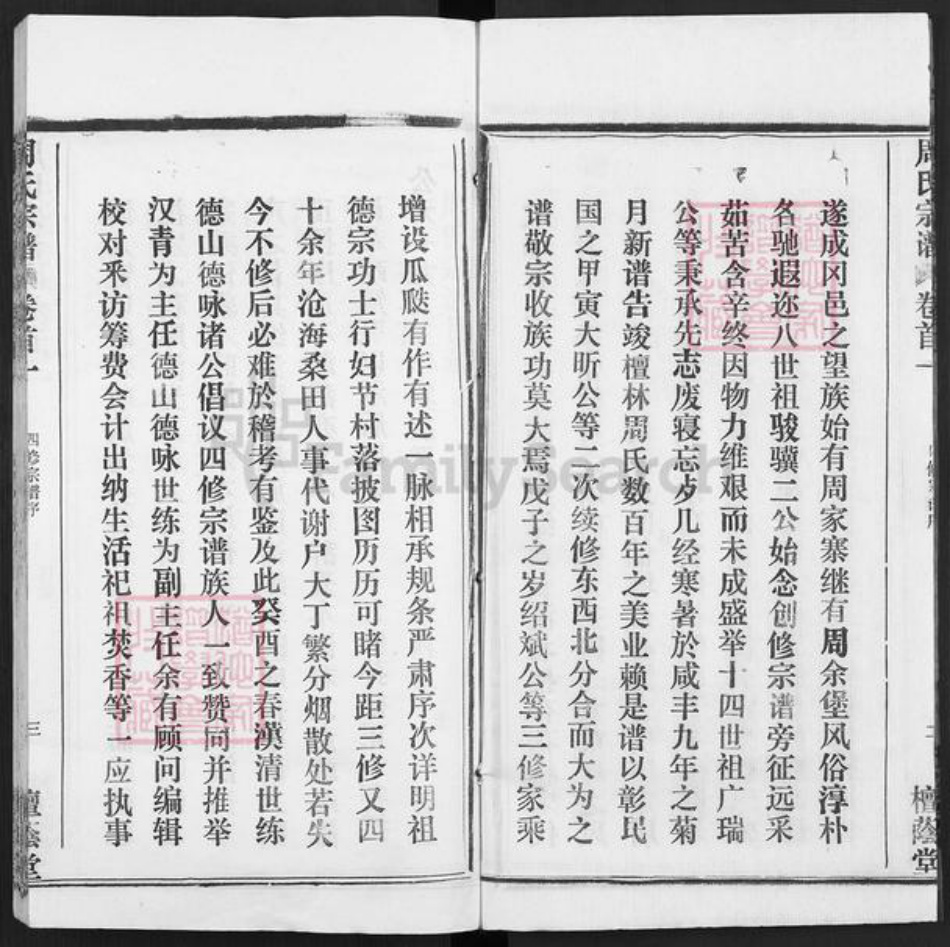 遂成冈邑之望族始有周家寨继有周余堡风俗淳朴
各驰遐迩八世祖骏骥二公始念创修宗谱旁征远采
茹苦含辛终因物力维艰而未成盛举十四世祖广瑞
公等秉承先志废寝忘歺几经寒暑於咸丰九年之菊
月新谱告竣檀林周氏数百年之美业赖是谱以彰民
国之甲寅大昕公等二次续修东西北分合而大为之
谱敬宗收族功莫大焉戊子之岁绍斌公等三修家乘
周氏宗谱 卷首一
檀荫堂
增设瓜瓞有作有述一脉相承规条严肃序次详明祖
德宗功士行妇节村落披图历历可睹今距三修又四
十余年沧海桑田人事代谢户大丁繁分烟散处若失
今不修后必难於稽考有鉴及此癸酉之春漢清世练
德山德咏诸公倡议四修宗谱族人一致赞同并推举
汉青为主任德山德咏世练为副主任余有顾问编辑
校对釆访筹费会计出纳生活祀祖焚香等一应执事
周氏宗谱 卷首一 四修宗谱序 三 檀荫堂
FamilySearch